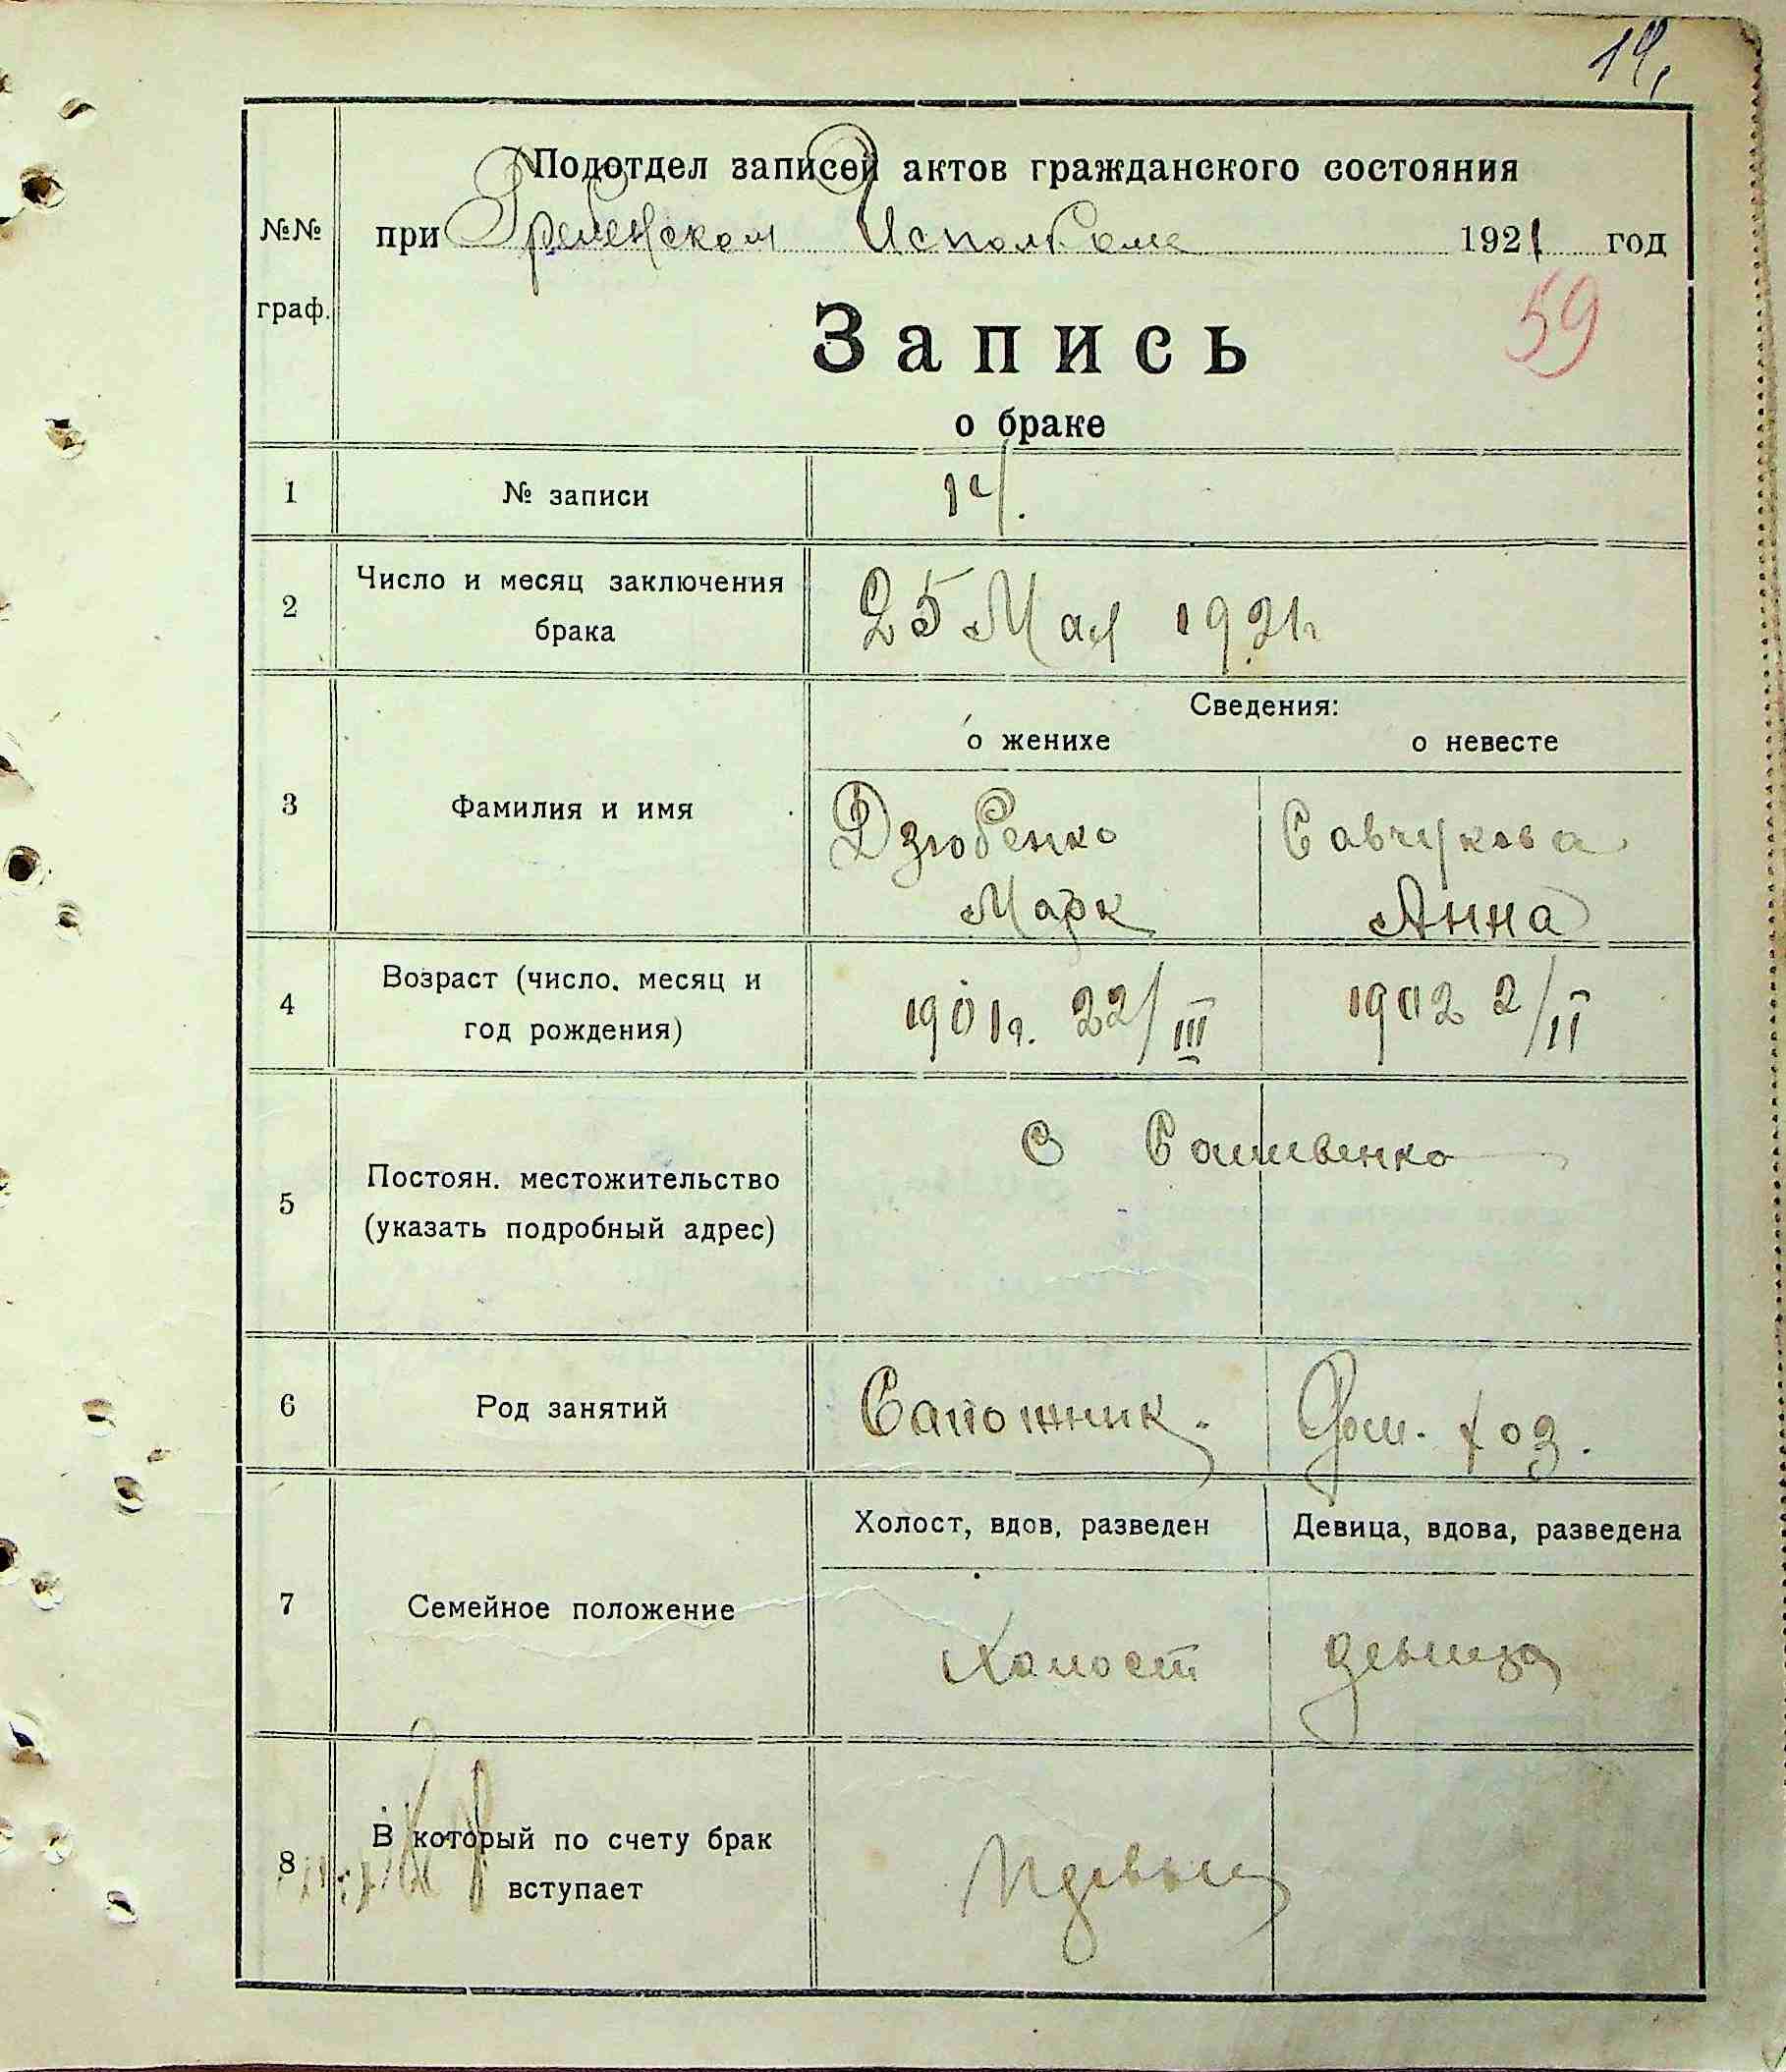 14,
Подотдел записей актов гражданского состояния
№№ при Гребенском Исполкоме 1921 год
граф.
59
Запись
о браке
1 № записи 14.
2 Число и месяц заключения брака 25 Мая 1921г
Сведения:
о женихе о невесте
3 Фамилия и имя Дзюбенко Савчукова
Марк Анна
4 Возраст (число, месяц и год рождения) 1901г. 22/III 1902 2/II
5 Постоян. местожительство (указать подробный адрес) С
6 Род занятий Сапожник. Дом. хоз.
Холост, вдов, разведен Девица, вдова, разведена
7 Семейное положение Холост девица
8 В который по счету брак вступает